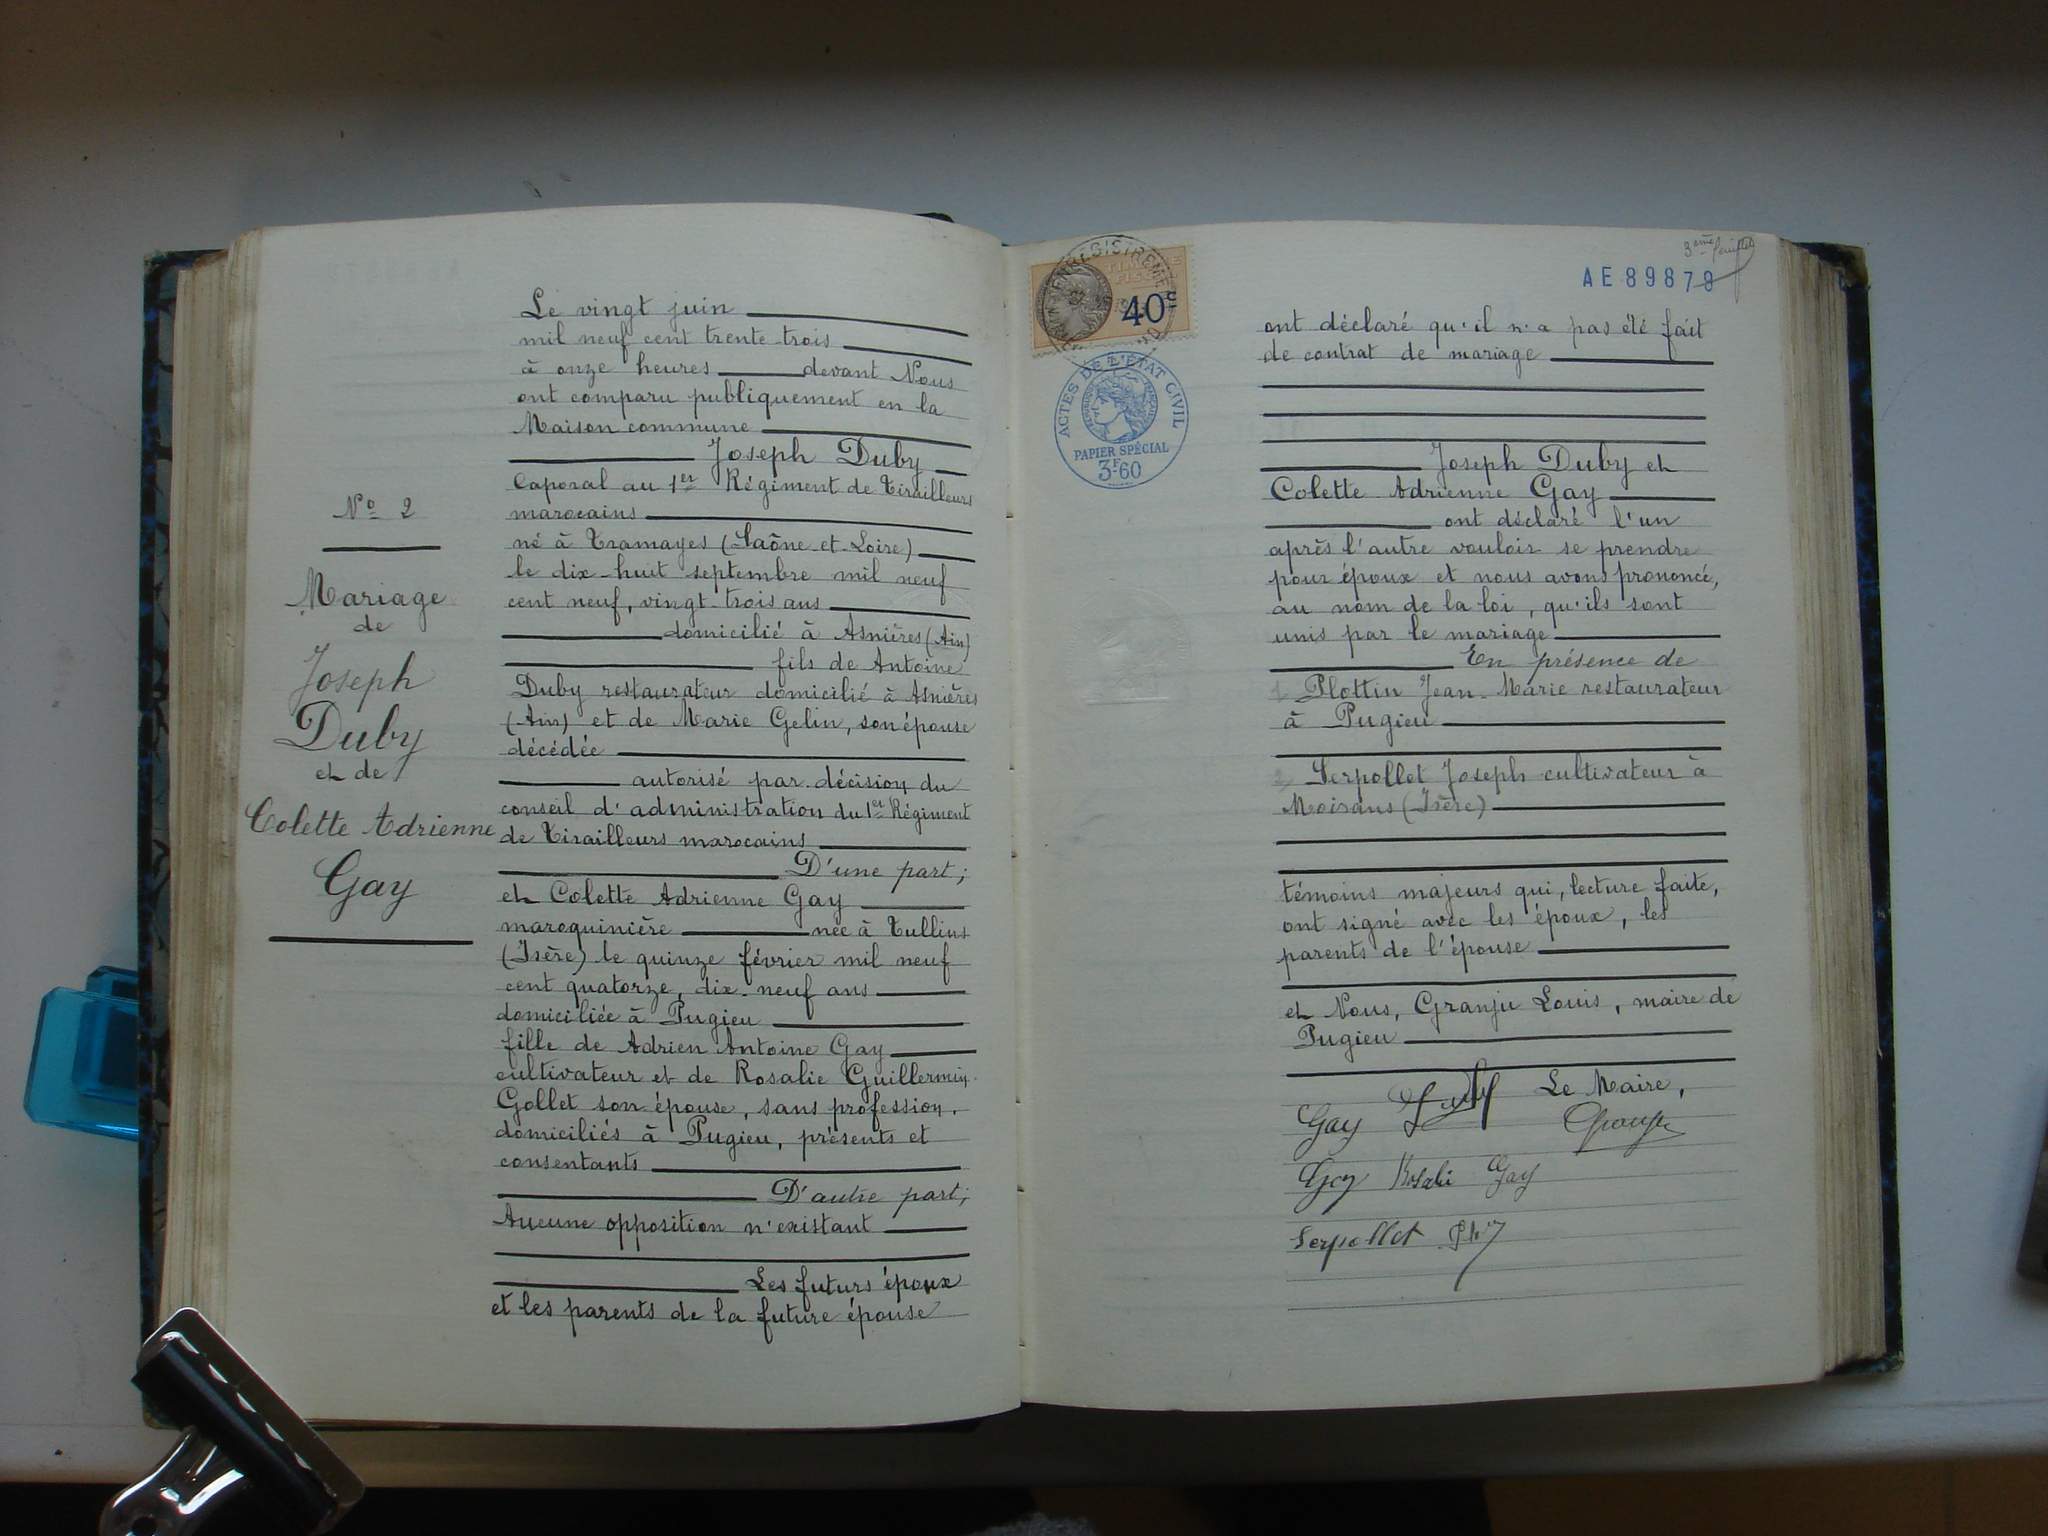 N° 2
Mariage
de
Joseph
Duby
et de
Colette Adrienne
Gay
Le vingt juin
mil neuf cent trente-trois
à onze heures devant Nous
ont comparu publiquement en la
Maison commune
Joseph Duby
Caporal au 1er Régiment de Tirailleurs
marocains
né à Tramayes (Saône-et-Loire)
le dix-huit septembre mil neuf
cent neuf, vingt-trois ans
domicilié à Asnières (Ain)
fils de Antoine
Duby restaurateur domicilié à Asnières
(Ain) et de Marie Gelin, son épouse
décédée
autorisé par décision du
conseil d'administration du 1er Régiment
de Tirailleurs marocains
D'une part;
et Colette Adrienne Gay
maroquinière née à Tullins
(Isère) le quinze février mil neuf
cent quatorze, dix-neuf ans
domiciliée à Pugieu
fille de Adrien Antoine Gay
cultivateur et de Rosalie Guillermin
Gollet son épouse, sans profession,
domiciliés à Pugieu, présents et
consentants
D'autre part;
Aucune opposition n'existant
Les futurs époux
et les parents de la future épouse
3ème feuillet
AE 89878
ENREGISTREMENT
TIMBRE
40c
ACTES DE L'ÉTAT CIVIL
PAPIER SPÉCIAL
3F60
ont déclaré qu'il n'a pas été fait
de contrat de mariage
Joseph Duby et
Colette Adrienne Gay
ont déclaré l'un
après l'autre vouloir se prendre
pour époux et nous avons prononcé,
au nom de la loi, qu'ils sont
unis par le mariage
En présence de
1 Plottin Jean-Marie restaurateur
à Pugieu
2 Serpollet Joseph cultivateur à
Moirans (Isère)
témoins majeurs qui, lecture faite,
ont signé avec les époux, les
parents de l'épouse
et Nous, Granju Louis, maire de
Pugieu
Gay Duby Le Maire,
Granju
Gay Rosalie Gay
Serpollet